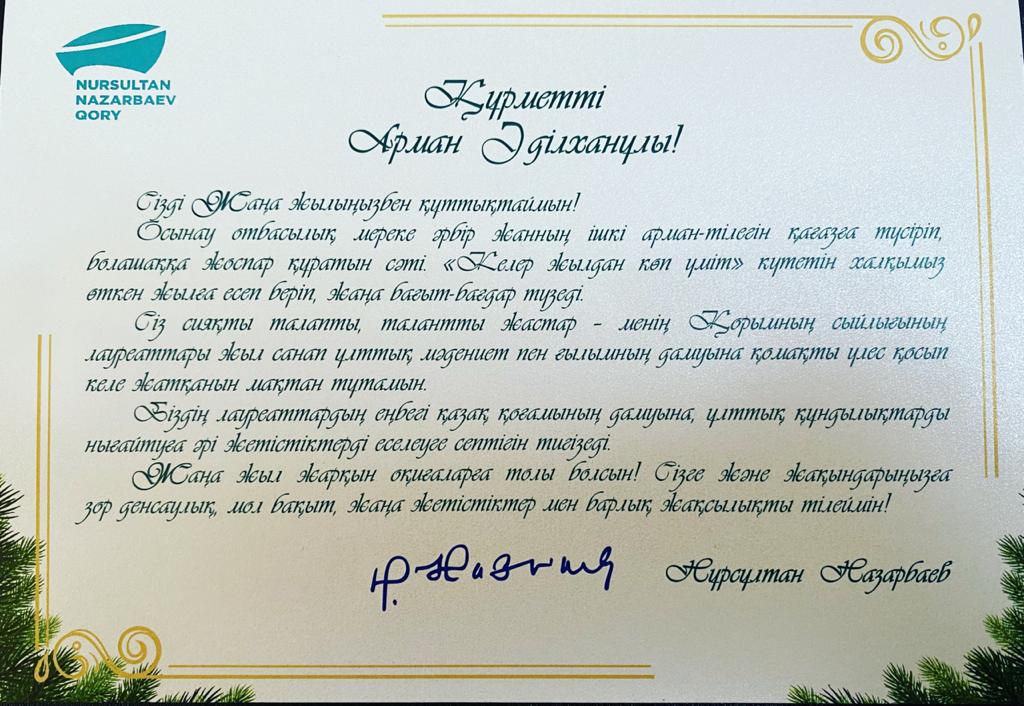 NURSULTAN
NAZARBAEV
QORY
Құрметті
Арман Әділханұлы!
Сізді Жаңа жылыңызбен құттықтаймын!
Осынау отбасылық мереке әрбір жанның ішкі арман-тілегін қағазға түсіріп,
болашаққа жоспар құратын сәті. «Келер жылдан көп үміт» күтетін халқымыз
өткен жылға есеп беріп, жаңа бағыт-бағдар түзеді.
Сіз сияқты талапты, талантты жастар – менің Қорымның сыйлығының
лауреаттары жыл санап ұлттық мәдениет пен ғылымның дамуына қомақты үлес қосып
келе жатқанын мақтан тұтамын.
Біздің лауреаттардың еңбегі қазақ қоғамының дамуына, ұлттық құндылықтарды
нығайтуға әрі жетістіктерді еселеуге септігін тигізеді.
Жаңа жыл жарқын оқиғаларға толы болсын! Сізге және жақындарыңызға
зор денсаулық, мол бақыт, жаңа жетістіктер мен барлық жақсылықты тілеймін!
Нұрсұлтан Назарбаев